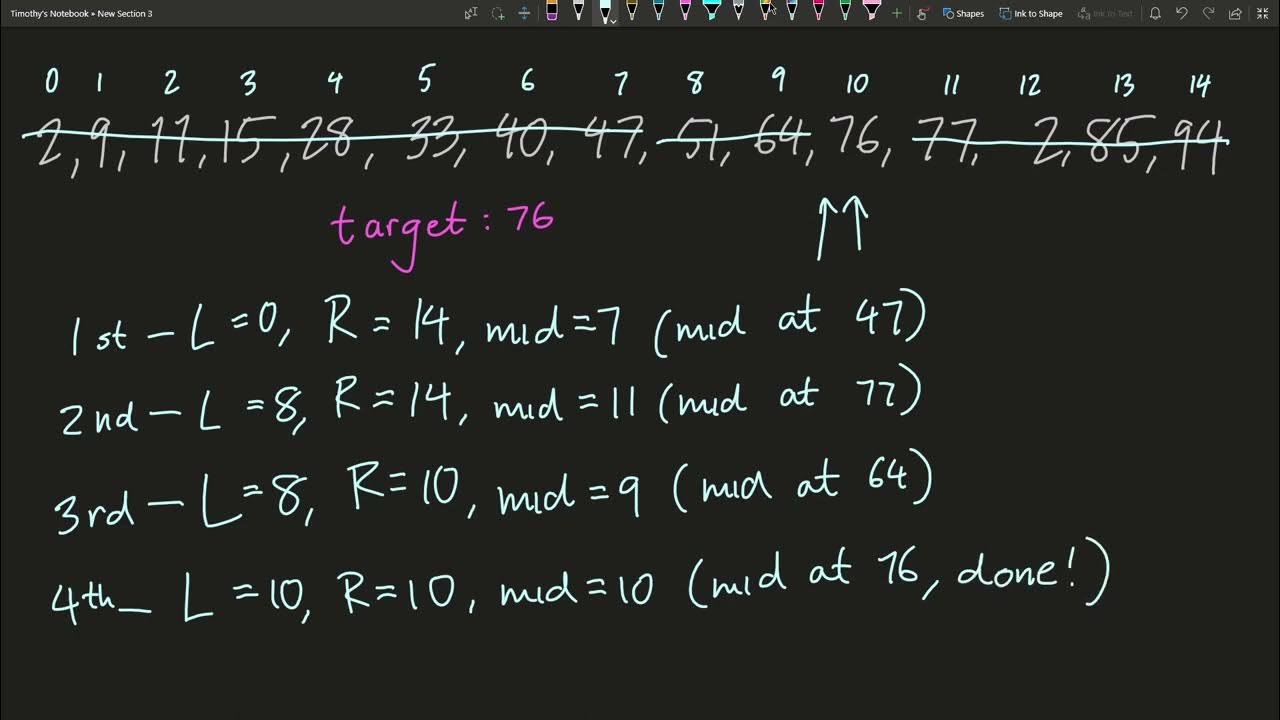 Timothy's Notebook » New Section 3
Shapes Ink to Shape Ink to Text
0 1 2 3 4 5 6 7 8 9 10 11 12 13 14
2, 9, 11, 15, 28, 33, 40, 47, 51, 64, 76, 77, 2, 85, 94
target: 76
1st – L = 0, R = 14, mid = 7 (mid at 47)
2nd – L = 8, R = 14, mid = 11 (mid at 77)
3rd – L = 8, R = 10, mid = 9 (mid at 64)
4th – L = 10, R = 10, mid = 10 (mid at 76, done!)